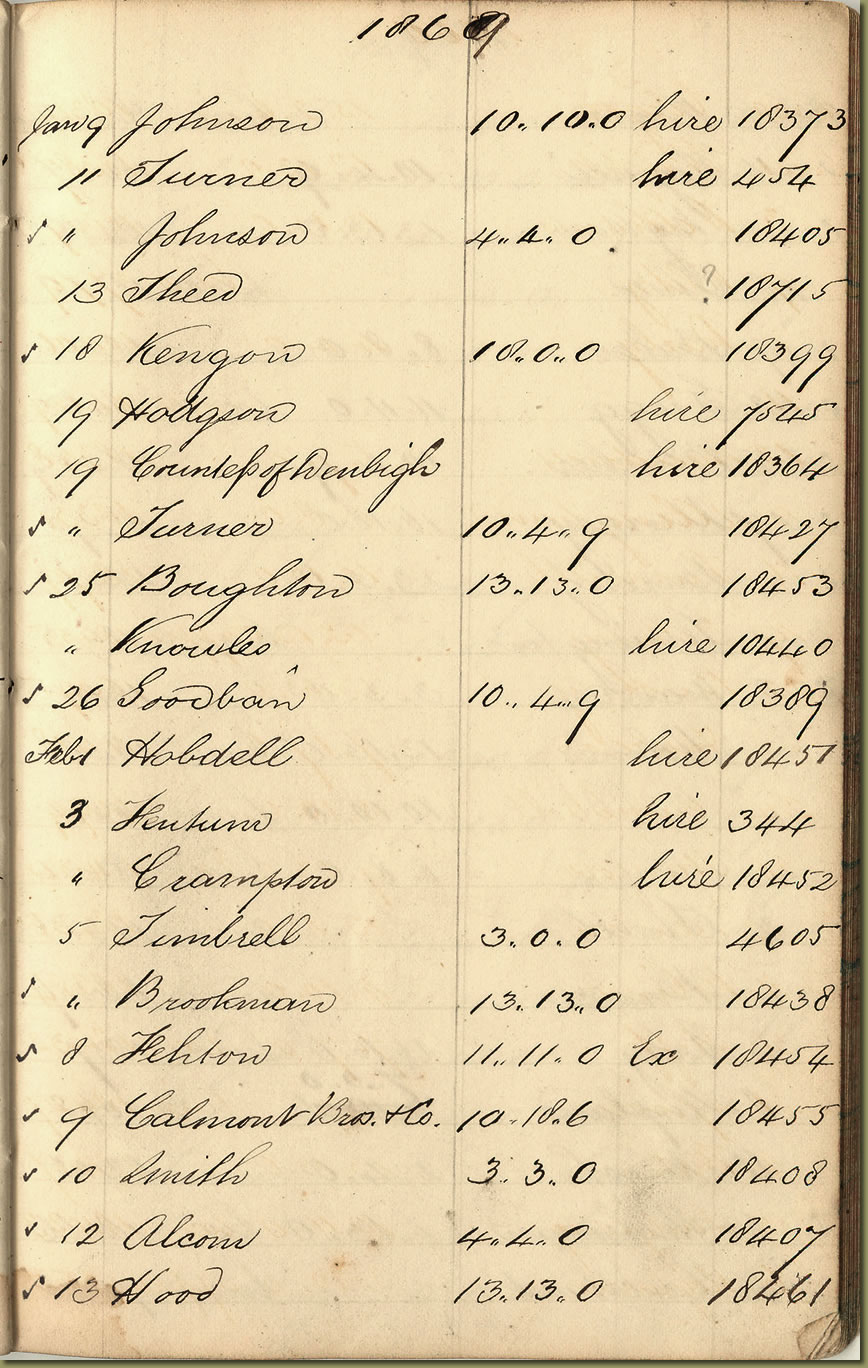 1869
Jan 9 Johnson 10.. 10..0 hire 18373
11 Turner hire 454
✓ " Johnson 4.. 4.. 0 18405
13 Theed ? 18715
✓ 18 Kengon 18..0..0 18399
19 Hodgson hire 7545
19 Countess of Denbigh hire 18364
✓ " Turner 10.. 4.. 9 18427
✓ 25 Boughton 13..13..0 18453
" Knowles hire 10440
✓ 26 Goodban 10.. 4.. 9 18389
Feb 1 Hobdell hire 18451
3 Hentum hire 344
" Crampton hire 18452
5 Timbrell 3..0..0 4605
✓ " Brookman 13..13..0 18438
✓ 8 Fenton 11.. 11.. 0 Ex 18454
✓ 9 Calmont Bros. & Co. 10..18..6 18455
✓ 10 Smith 3.. 3.. 0 18408
✓ 12 Alcom 4.. 4.. 0 18407
✓ 13 Hood 13..13..0 18461